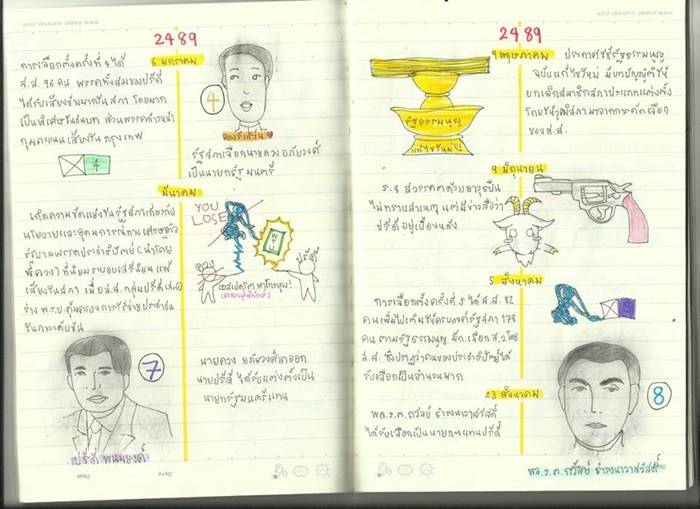 2489
6 มกราคม
การเลือกตั้งครั้งที่ 4 ได้
ส.ส. 96 คน พรรคทั้งสมของปรีดี
ได้รับเสียงข้างมากในสภา โดยมาก
เป็นพิเศษในชนบท ส่วนพรรคก้าวหน้า
กุมคะแนนเสียงใน กรุงเทพ
4
4
รัฐสภาเลือกนายควง อภัยวงศ์
เป็นนายกรัฐมนตรี
มีนาคม
เกิดความขัดแย้งในรัฐสภาเกี่ยวกับ
นโยบายและอุดมการณ์ทางเศรษฐกิจ
รัฐบาลพรรคประชาธิปัตย์ (นำโดย
ควง) ที่นิยมระบอบเสรีนิยม แพ้
เสียงในสภา เมื่อ ส.ส. กลุ่มปรีดีเสนอ
ร่าง พ.ร.บ. คุ้มครองการใช้จ่ายประชาชน
ในภาวะคับขัน
YOU
LOSE
พรบ
ควง
ปรีดี
7
ปรีดี พนมยงค์
นายควง อภัยวงศ์ลาออก
นายปรีดี ได้รับแต่งตั้งเป็น
นายกรัฐมนตรีแทน
Date
Page
2489
9 พฤษภาคม
ประกาศใช้รัฐธรรมนูญ
ฉบับแก้ไขใหม่ มีบทบัญญัติให้
ยกเลิกสมาชิกสภาประเภทแต่งตั้ง
โดยให้วุฒิสภามาจากการคัดเลือก
ของ ส.ส.
รัฐธรรมนูญ
แก้ไขใหม่
9 มิถุนายน
ร.8 สวรรคตด้วยอาวุธปืน
ไม่ทราบสาเหตุ แต่มีข่าวลือว่า
ปรีดีอยู่เบื้องหลัง
5 สิงหาคม
การเลือกตั้งครั้งที่ 5 ได้ ส.ส. 82
คน เพิ่มไปเติมให้ครบองค์รัฐสภา 178
คน ตามรัฐธรรมนูญ
ส.ส. ซึ่งปรากฏว่าคนของประชาธิปัตย์ได้
รับเลือกเป็นจำนวนมาก
5
23 สิงหาคม
พล.ร.ต. ถวัลย์ ธำรงนาวาสวัสดิ์
ได้รับเลือกเป็นนายกฯแทนปรีดี
8
พล.ร.ต. ถวัลย์ ธำรงนาวาสวัสดิ์